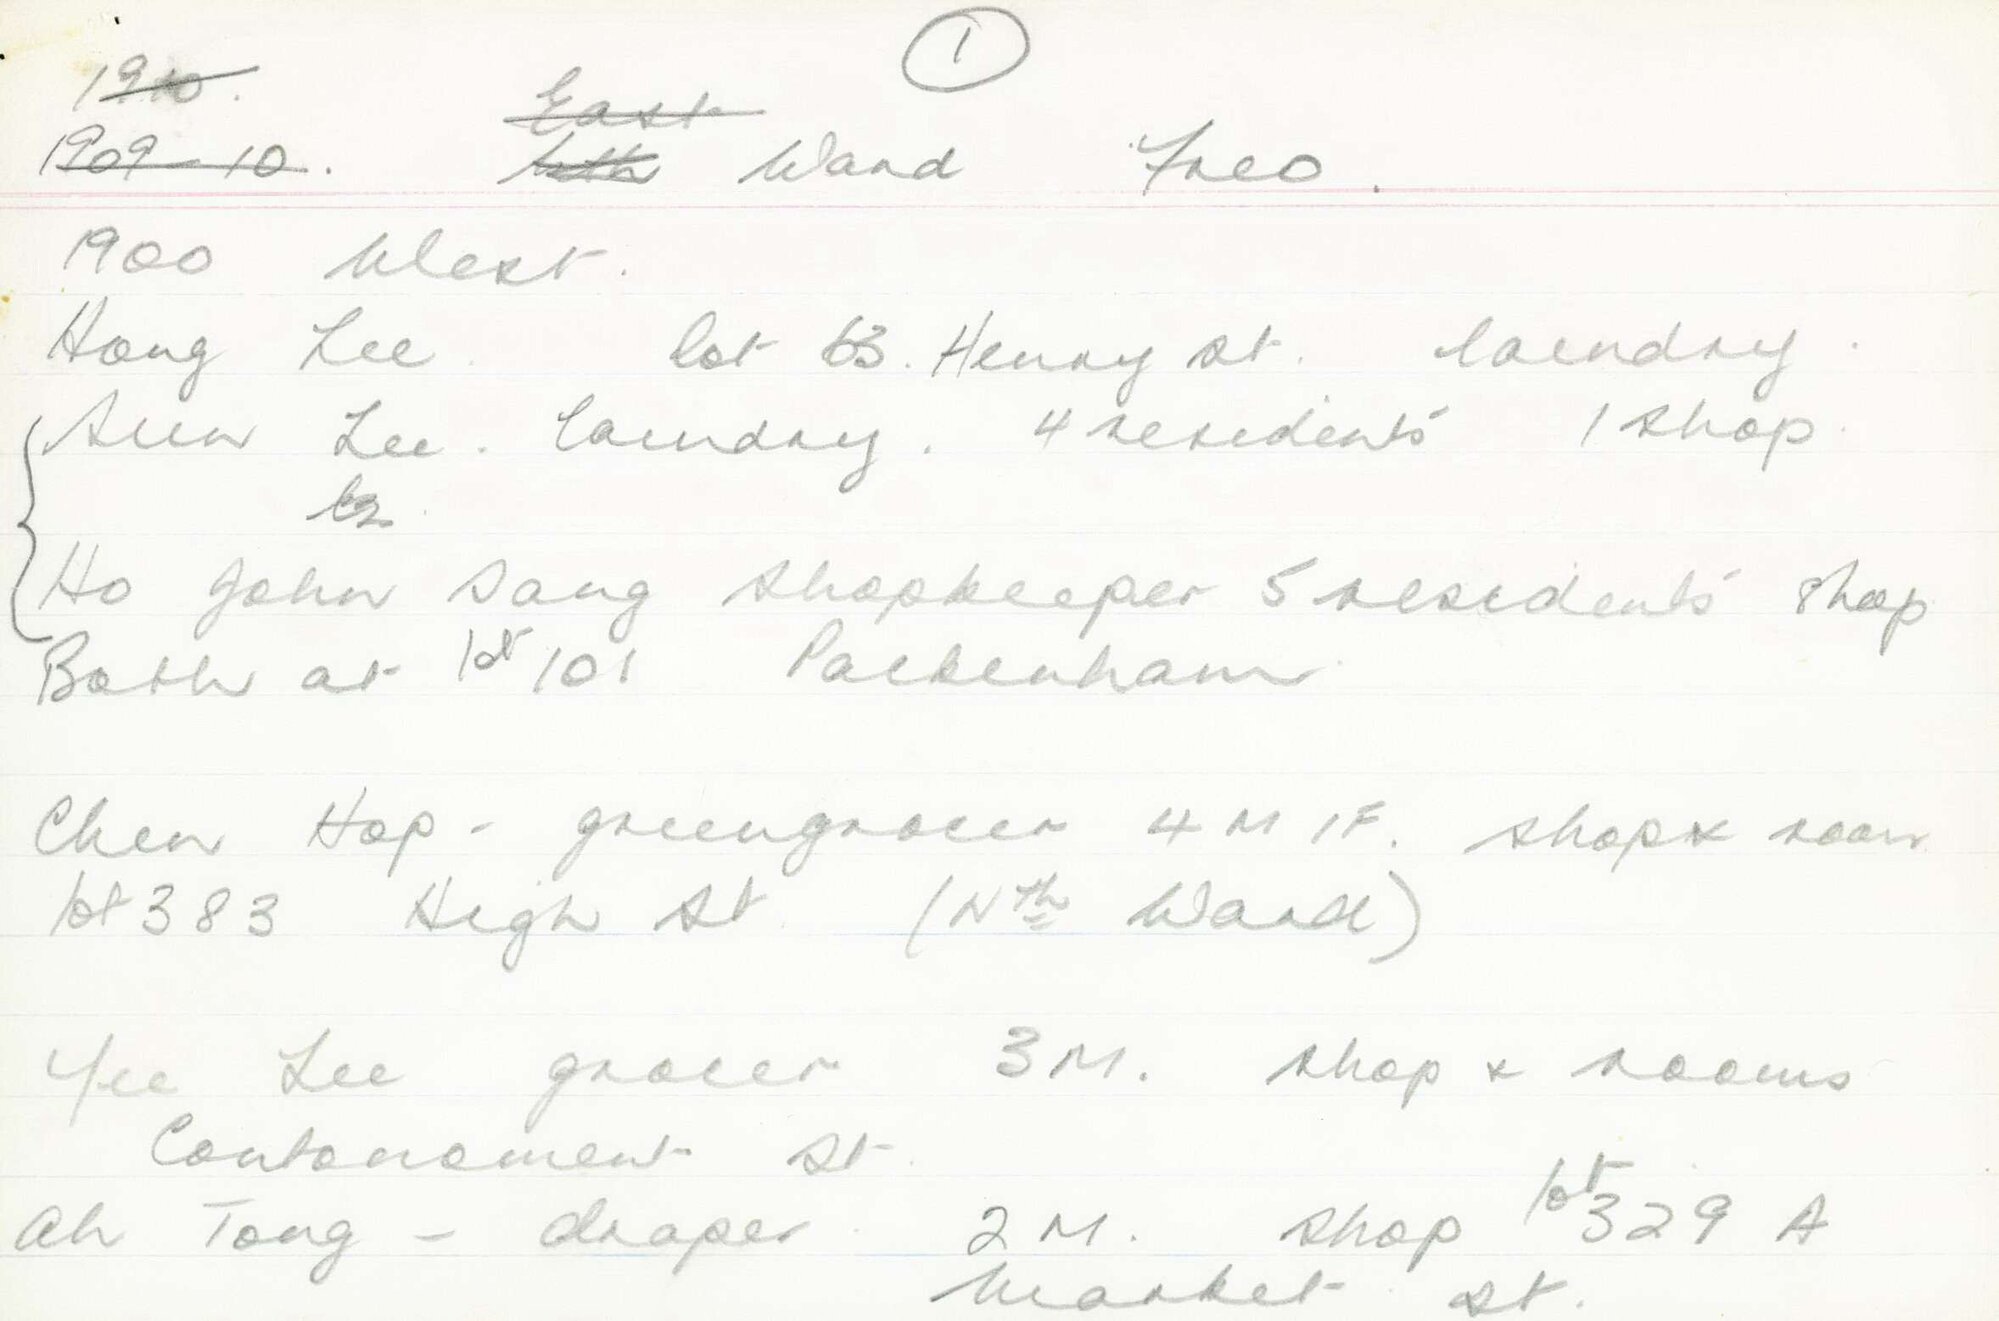 1
1910.
East
1909-10. Ward Freo.
1900 West.
Hong Lee. lot 63. Henry st. laundry.
Sun Lee. laundry. 4 residents 1 shop.
Ho John Sang shopkeeper 5 residents shop
Both at lot 101 Packenham
Chen Hop - greengrocer 4 M 1 F. shop & room
lot 383 High St (Nth Ward)
Yee Lee grocer 3 M. shop & rooms
Contonoment St.
Ah Tong - draper 2 M. shop lot 329 A
Market St.